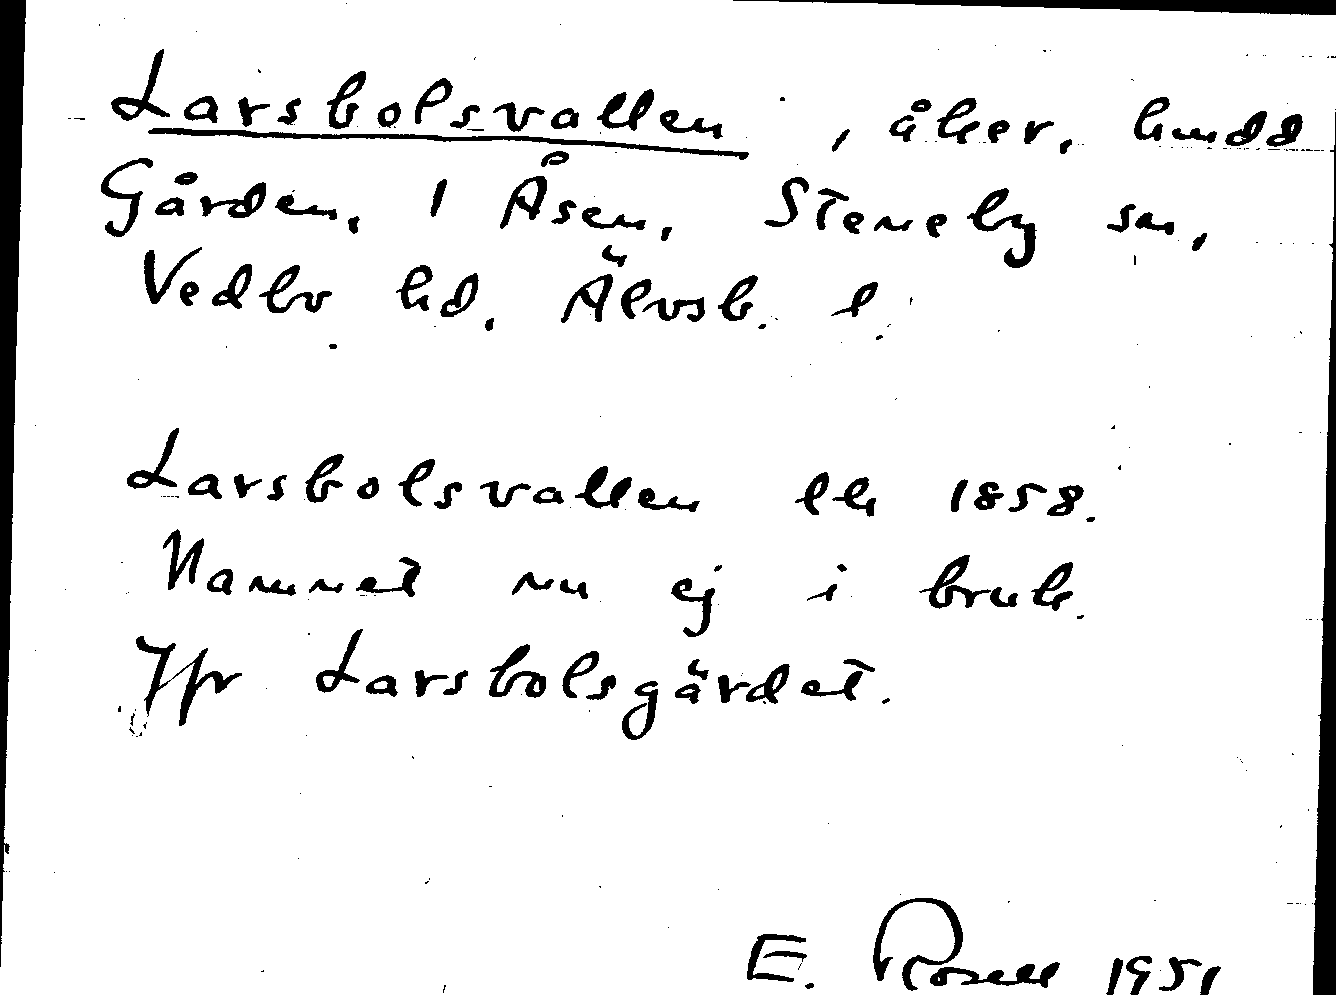 Larsbolsvallen, åker, hmdd
Gården, 1 Åsen, Steneby sn,
Vedbo hd. Älvsb. l.
Larsbolsvallen lk 1858.
Namnet nu ej i bruk.
Jfr Larsbolsgärdet.
E. Rosell 1951